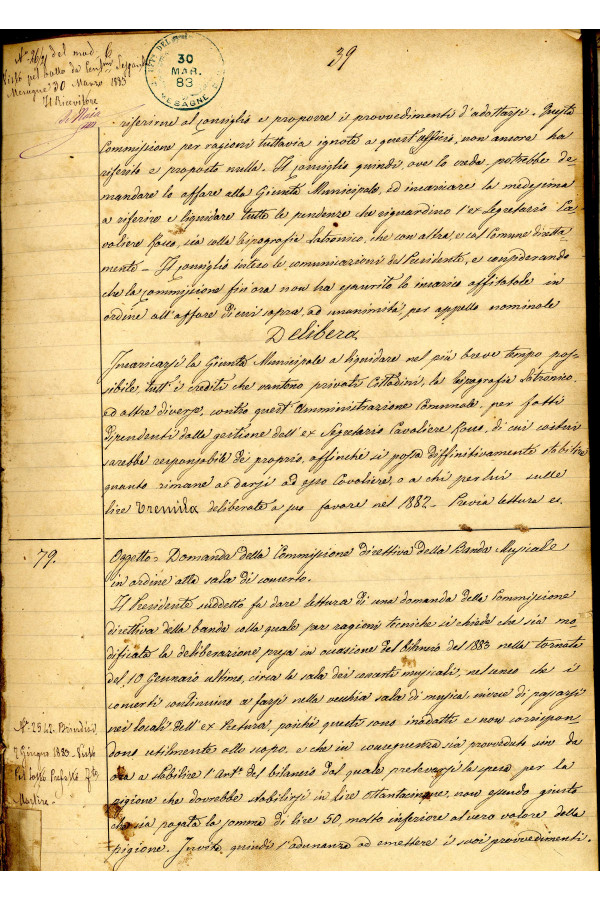 Nº 26/4 del mod. 6
Visto pel bollo da
Mesagne 30 Marzo 1883
Il Ricevitore
39
30
MAR.
83
MESAGNE
riferirne al Consiglio e proporre i provvedimenti d'adottarsi. Questa
Commissione per ragioni tuttavia ignote a quest'ufficio, non ancora ha
riferito e proposto nulla. Il Consiglio quindi, ove lo creda, potrebbe de-
mandare lo affare alla Giunta Municipale, ed incaricare la medesima
a riferire e liquidare tutte le pendenze che riguardino l'ex Segretario Ca-
valiere Roso, sia colla Tipografia Latronico, che con altra, e col Comune diretta-
mente - Il Consiglio intese le comunicazioni del Presidente, e considerando
che la Commissione fin'ora non ha esaurito lo incarico affidatole in
ordine all'affare di cui sopra, ad unanimità, per appello nominale
Delibera
Incaricarsi la Giunta Municipale a liquidare nel più breve tempo pos-
sibile, tutt'i crediti che vantino privati Cittadini, la Tipografia Latronico,
ed altre diverse, contro quest'Amministrazione Comunale, per fatti
dipendenti dalla gestione dell'ex Segretario Cavaliere Roso, di cui costui
sarebbe responsabile de proprio, affinchè si possa diffinitivamente stabilire
quanto rimane a darsi ad esso Cavaliere, o a chi per lui sulle
lire Tremila deliberate a suo favore nel 1882 - Previa lettura es.
79.
Oggetto = Domanda della Commissione direttiva della Banda Musicale
in ordine alla sala di concerto.
Il Presidente suddetto fa dare lettura di una domanda della Commissione
direttiva della banda colla quale per ragioni tecniche si chiede che sia mo-
dificata la deliberazione presa in occasione del bilancio del 1883 nella tornata
del 10 Gennaio ultimo, circa la sala dei concerti musicali, nel senso che i
concerti continuino a farsi nella vecchia sala di musica invece di passarsi
nei locali dell'ex Pretura, poichè questi sono inadatti e non corrispon-
dono utilmente allo scopo, e che in conseguenza sia provveduto sin da
ora a stabilire l'Artº del bilancio dal quale prelevarsi la spesa per la
pigione che dovrebbe stabilirsi in lire Ottantacinque, non essendo giusto
che sia pagata la somma di lire 50, molto inferiore al vero valore della
pigione. Invita quindi l'adunanza ad emettere i suoi provvedimenti.
Nº 2542. Brindisi
7 Giugno 1883. Visto
Pel Sotto Prefetto